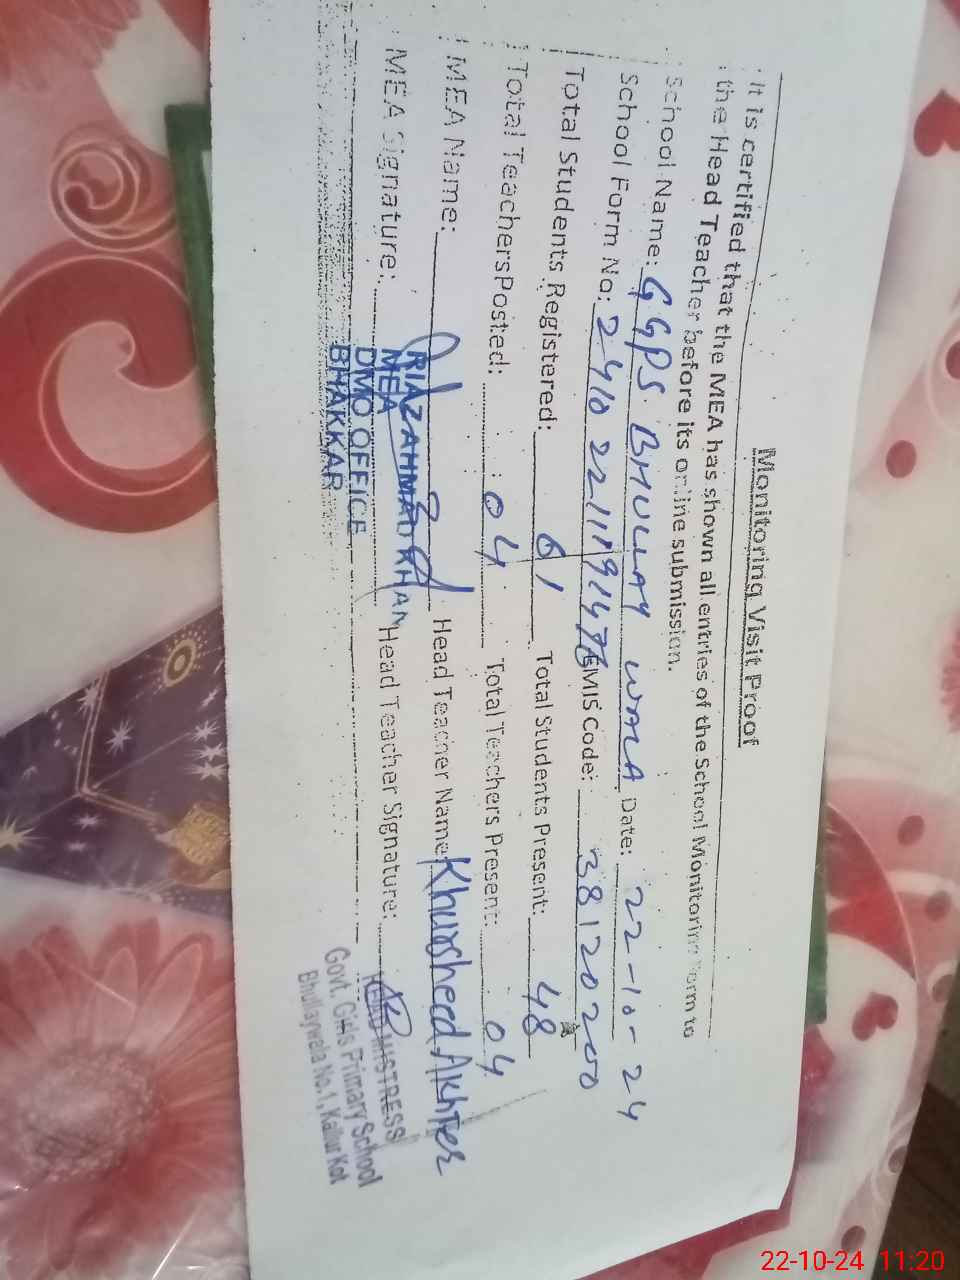 Monitoring Visit Proof
It is certified that the MEA has shown all entries of the School Monitoring Form to
the Head Teacher before its online submission.
School Name: GGPS BHULLAY WALA Date: 22-10-24
School Form No: EMIS Code: 381202000
Total Students Registered: 61 Total Students Present: 48
Total Teachers Posted: 04 Total Teachers Present: 04
MEA Name: Head Teacher Name Khursheed Akhter
MEA Signature: Head Teacher Signature:
RIAZ AHMAD KHAN
MEA
DMO OFFICE
BHAKKAR
HEAD MISTRESS
Govt. Girls Primary School
Bhullaywala No.1, Kallur Kot
22-10-24 11:20